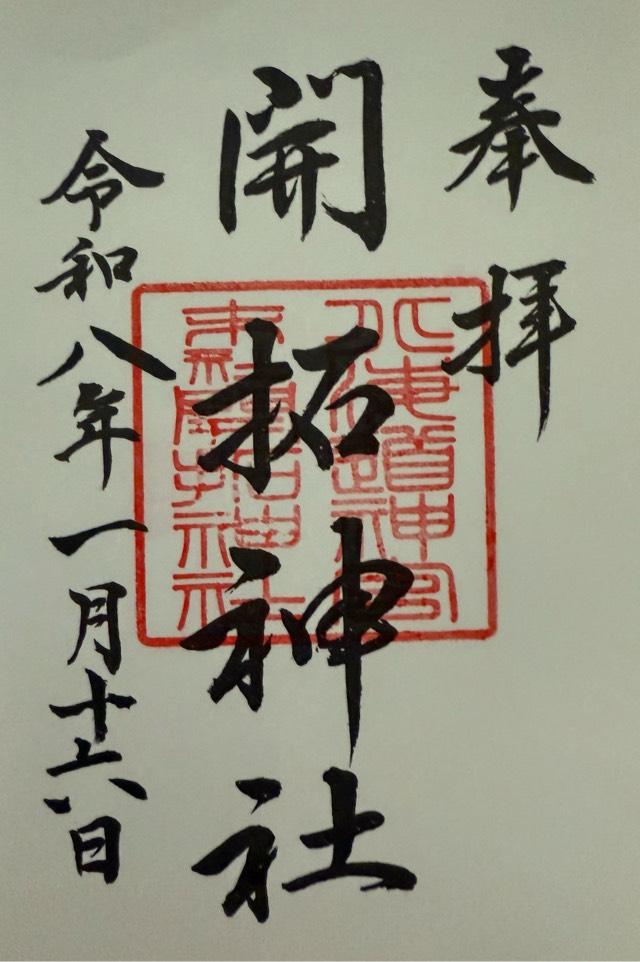 奉拝
開拓神社
北海道神宮
末社開拓神社
令和八年一月十六日